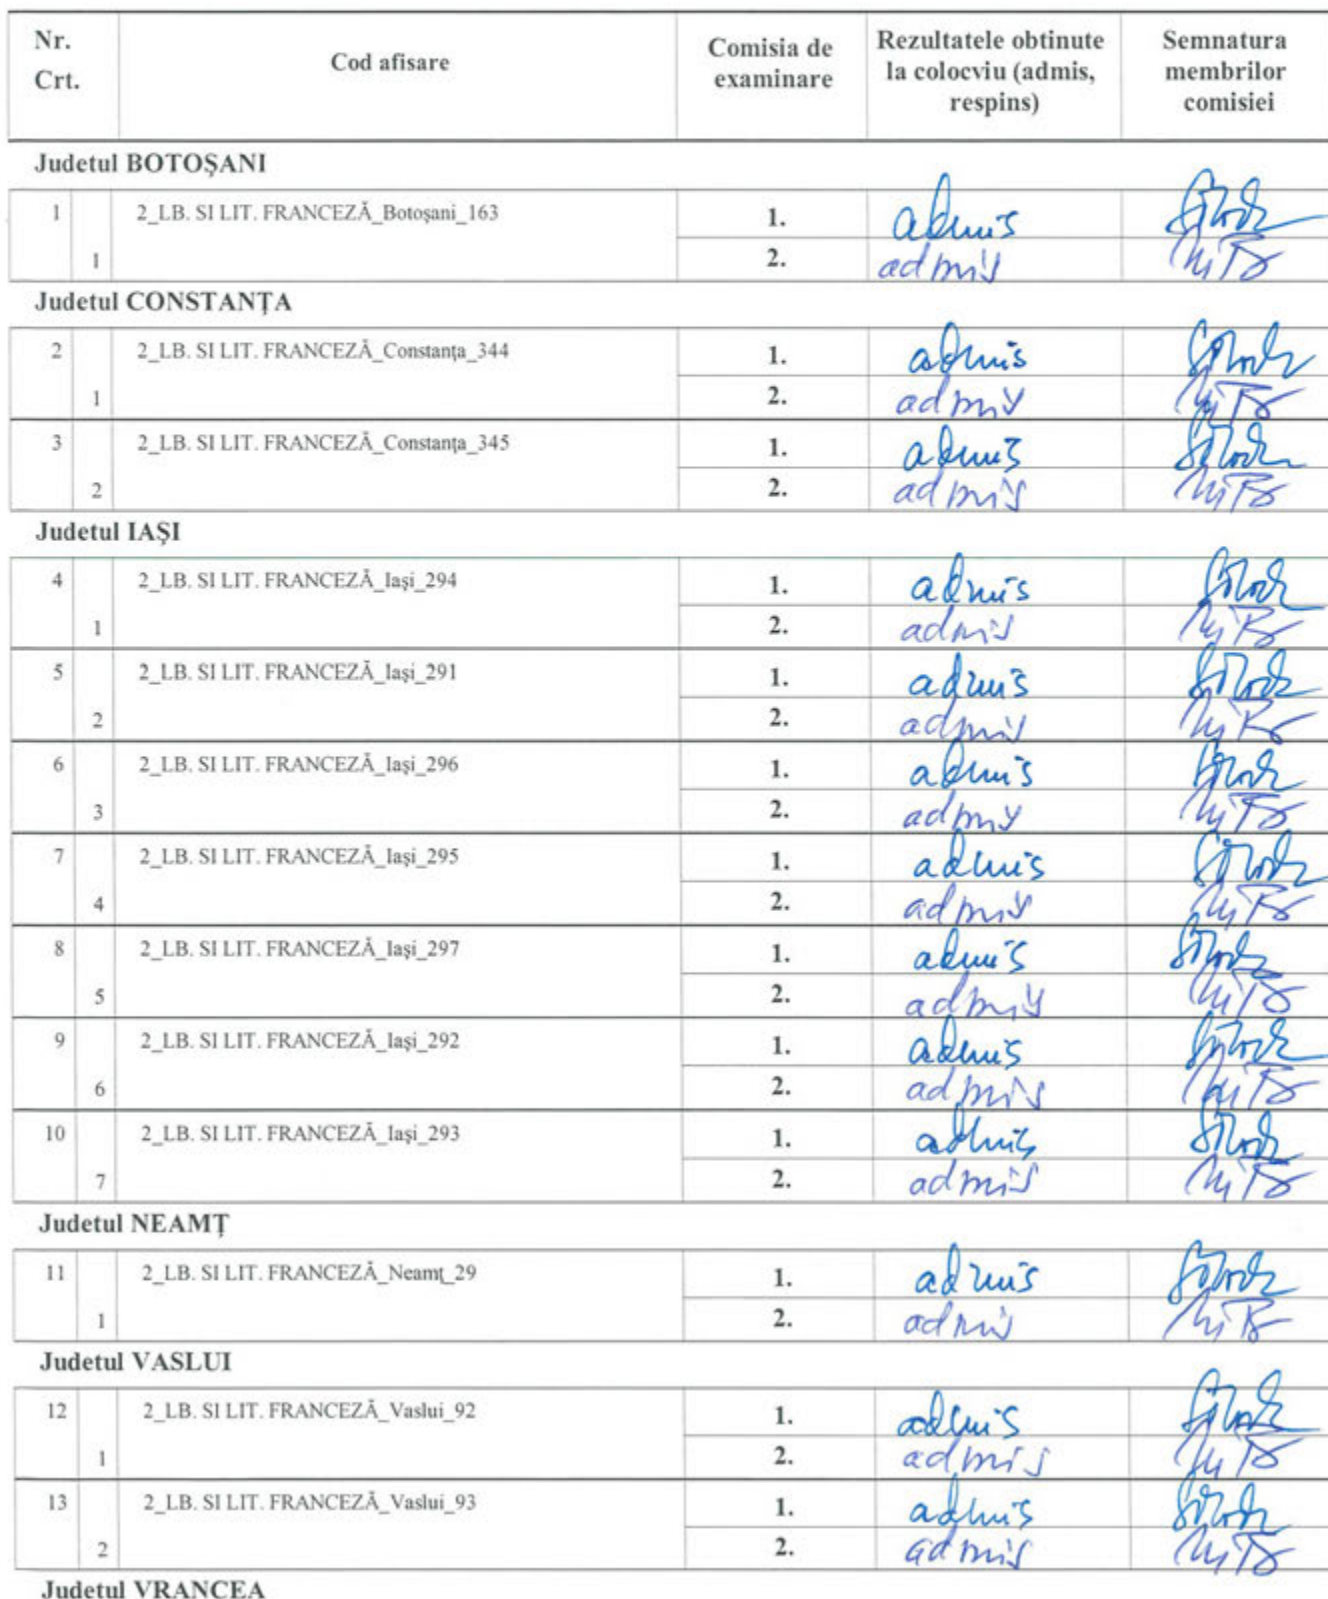 Nr. Crt. Cod afisare Comisia de examinare Rezultatele obtinute la colocviu (admis, respins) Semnatura membrilor comisiei
Judetul BOTOȘANI
1 2_LB. SI LIT. FRANCEZĂ_Botoşani_163 1. admis
1 2. admis
Judetul CONSTANȚA
2 2_LB. SI LIT. FRANCEZĂ_Constanţa_344 1. admis
1 2. admis
3 2_LB. SI LIT. FRANCEZĂ_Constanţa_345 1. admis
2 2. admis
Judetul IAȘI
4 2_LB. SI LIT. FRANCEZĂ_Iaşi_294 1. admis
1 2. admis
5 2_LB. SI LIT. FRANCEZĂ_Iaşi_291 1. admis
2 2. admis
6 2_LB. SI LIT. FRANCEZĂ_Iaşi_296 1. admis
3 2. admis
7 2_LB. SI LIT. FRANCEZĂ_Iaşi_295 1. admis
4 2. admis
8 2_LB. SI LIT. FRANCEZĂ_Iaşi_297 1. admis
5 2. admis
9 2_LB. SI LIT. FRANCEZĂ_Iaşi_292 1. admis
6 2. admis
10 2_LB. SI LIT. FRANCEZĂ_Iaşi_293 1. admis
7 2. admis
Judetul NEAMȚ
11 2_LB. SI LIT. FRANCEZĂ_Neamţ_29 1. admis
1 2. admis
Judetul VASLUI
12 2_LB. SI LIT. FRANCEZĂ_Vaslui_92 1. admis
1 2. admis
13 2_LB. SI LIT. FRANCEZĂ_Vaslui_93 1. admis
2 2. admis
Judetul VRANCEA